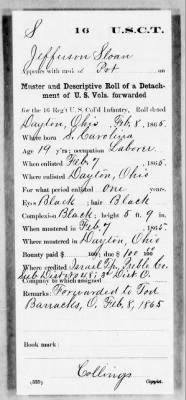 S 16 U.S.C.T.
Jefferson Sloan
Appears with rank of Pvt on
Muster and Descriptive Roll of a Detach-
ment of U. S. Vols. forwarded
for the 16 Reg't U. S. Col'd Infantry, Roll dated
Dayton, Ohio Feb. 8, 1865.
Where born S. Carolina
Age 19 y'rs; occupation Laborer
When enlisted Feb. 7, 1865.
Where enlisted Dayton, Ohio
For what period enlisted one years.
Eyes Black; hair Black
Complexion Black; height 5 ft. 9 in.
When mustered in Feb. 7, 1865.
Where mustered in Dayton, Ohio
Bounty paid $ 100; due $ 100
Where credited Israel Tp. Preble Co.
Sub Dist. 48; 3d Dist. O.
Company to which assigned
Remarks: Forwarded to Tod
Barracks, O. Feb. 8, 1865
Book mark:
Collings
(339) Copyist.